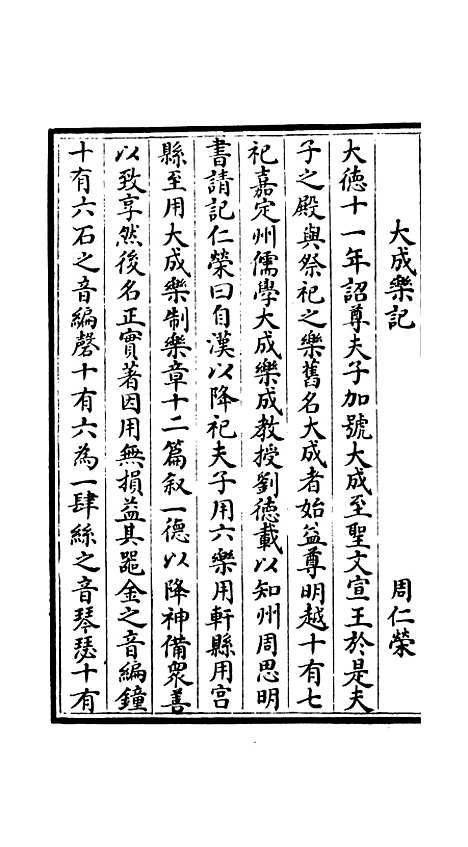 大成樂記
周仁榮
大徳十一年詔尊夫子加號大成至聖文宣王於是夫
子之殿與祭祀之樂舊名大成者始益尊明越十有七
祀嘉定州儒學大成樂成教授劉徳載以知州周思明
書請記仁榮曰自漢以降祀夫子用六樂用軒縣用宫
縣至用大成樂制樂章十二篇叙一徳以降神備衆善
以致享然後名正實著因用無損益其噐金之音編鐘
十有六石之音編磬十有六為一肆絲之音琴瑟十有